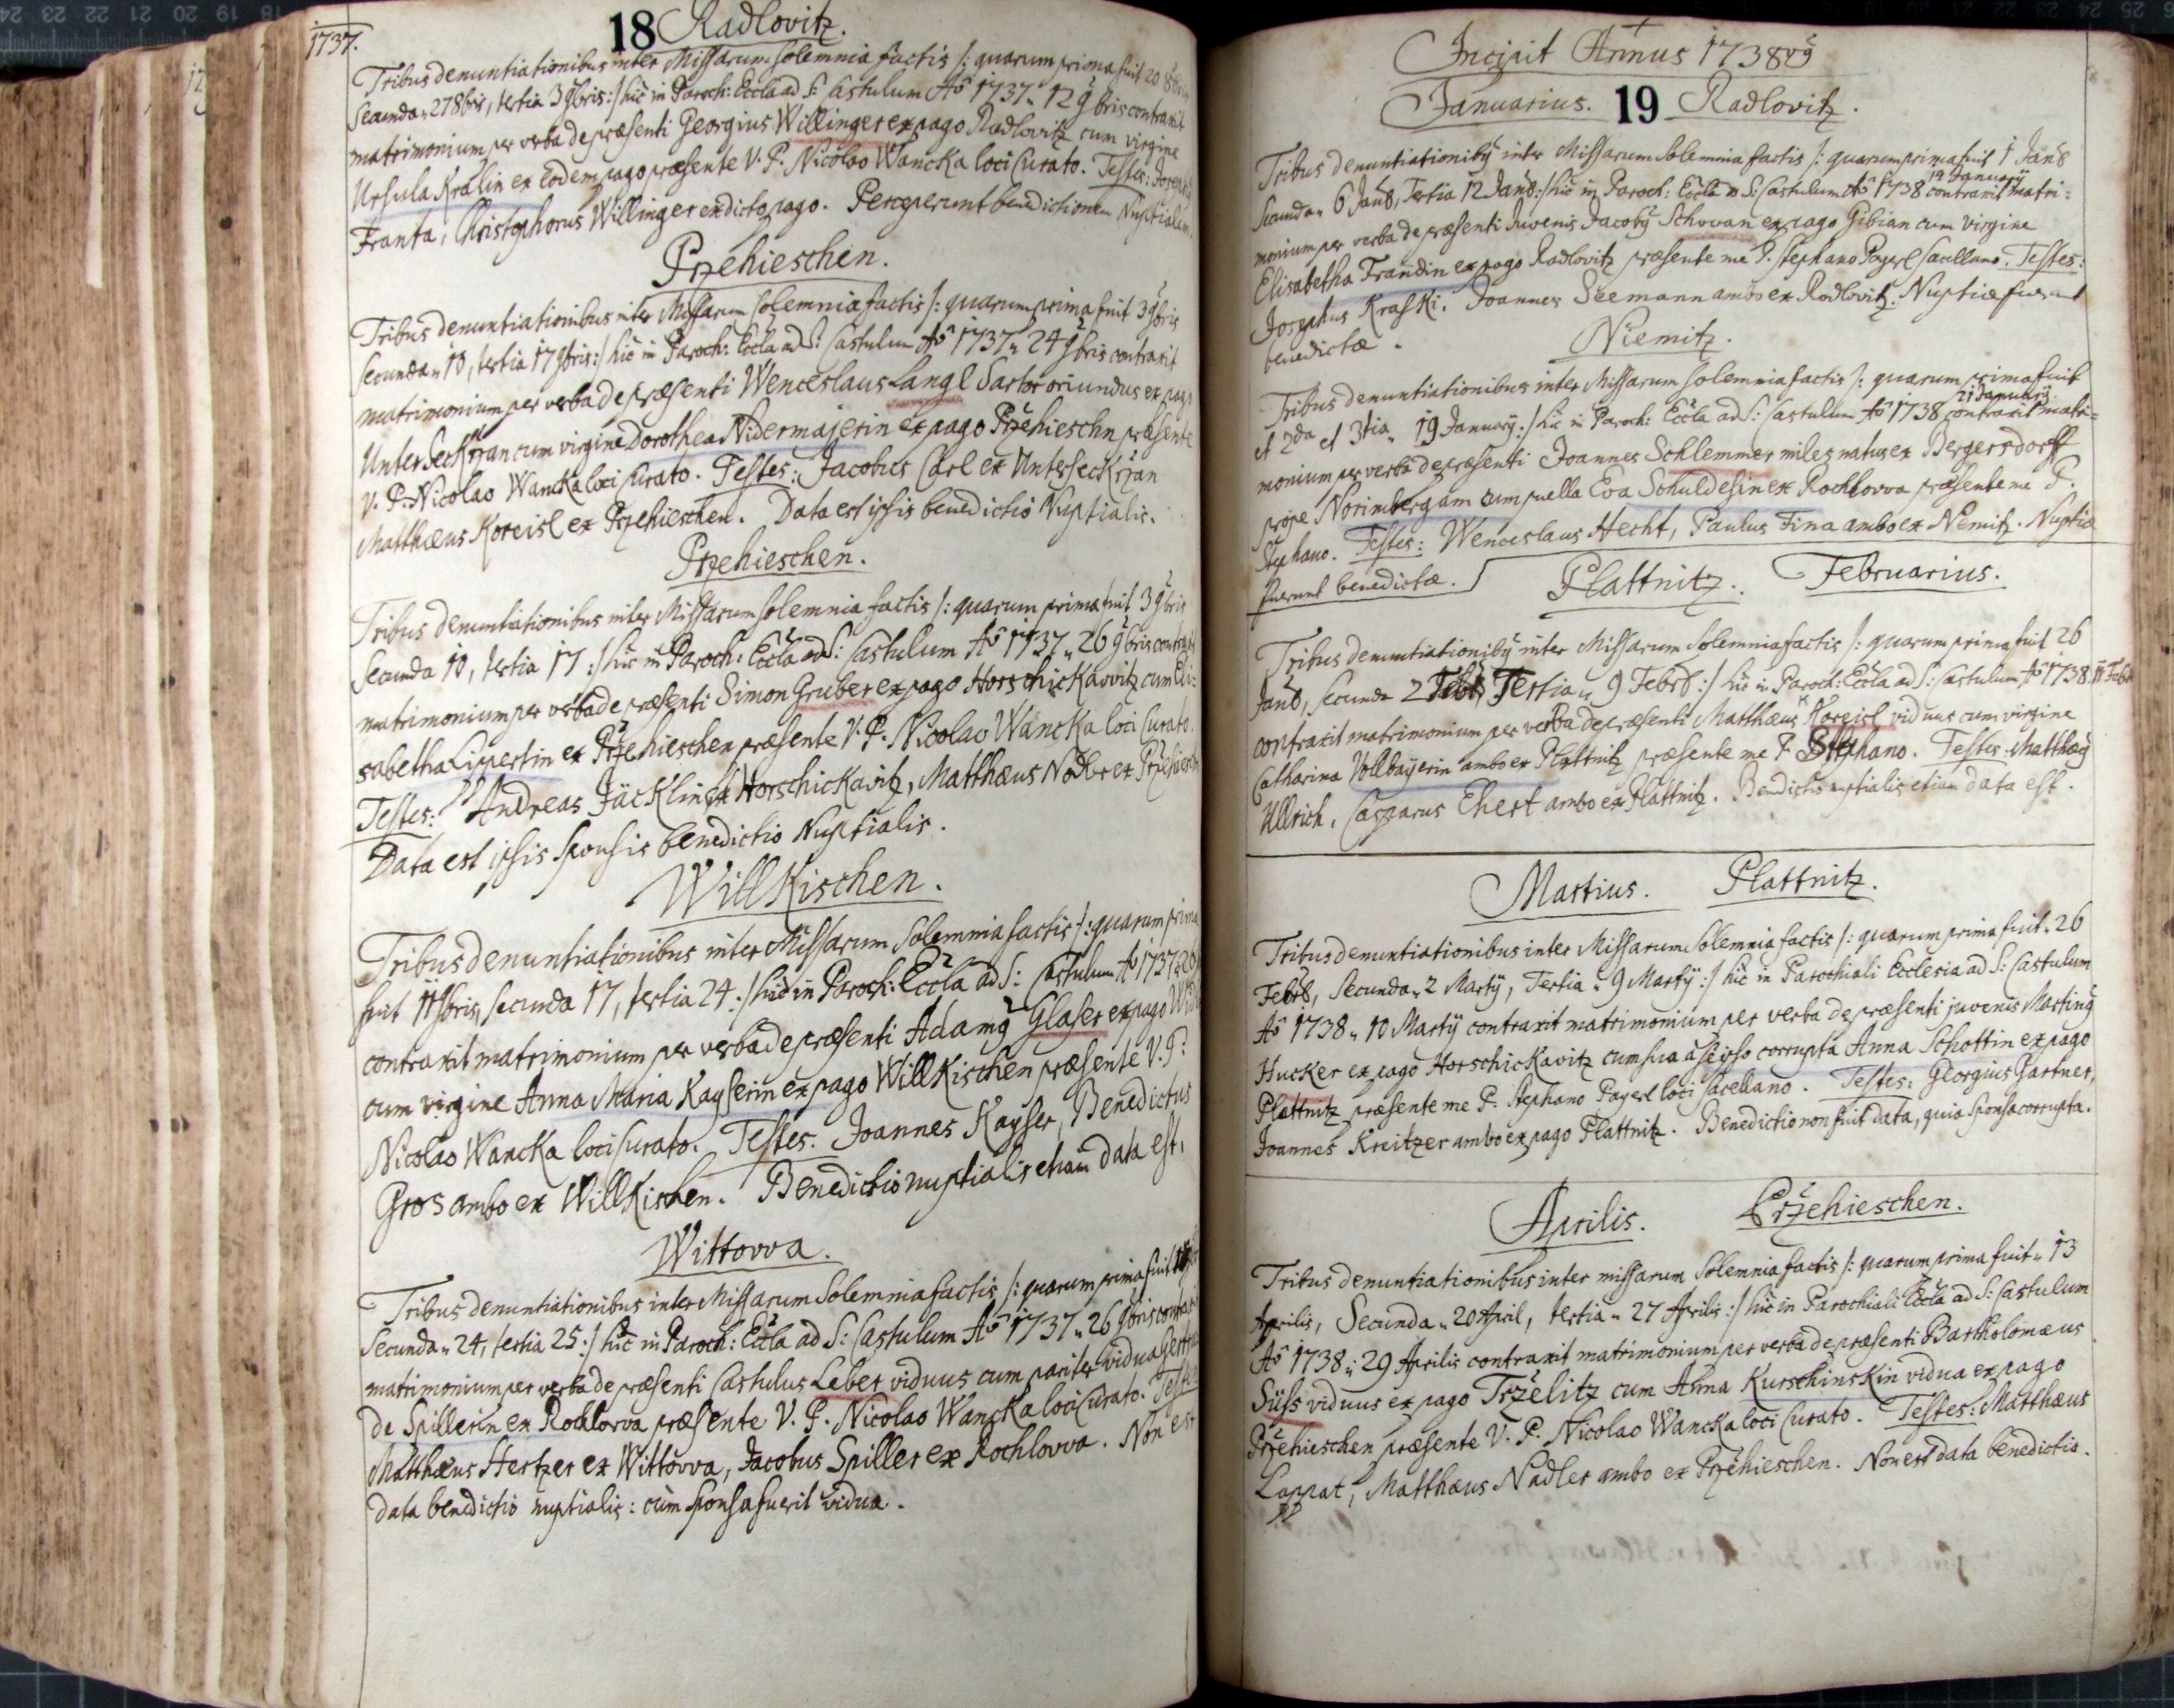 1737.
18 Radlovitz.
Tribus denuntiationibus inter Missarum solemnia factis /: quarum prima fuit 20 8bris
Secunda 27 8bris, tertia 3 9bris :/ hic in Paroch: Eccla ad S: Castulum Ao 1737 „ 12 9bris contraxit
matrimonium per verba de præsenti Georgius Willinger ex pago Radlovitz cum virgine
Ursula Kralin ex eodem pago præsente V. P. Nicolao Wancka loci Curato. Testes: Josephus
Franta, Christophorus Willinger ex dicto pago. Perceperunt benedictionem Nuptialem.
Przehieschen.
Tribus denuntiationibus inter Missarum solemnia factis /: quarum prima fuit 3 9bris
secunda „ 10, tertia 17 9bris :/ hic in Paroch: Eccla ad S: Castulum Ao 1737 „ 24 9bris contraxit
matrimonium per verba de præsenti Wenceslaus Langl Sartor oriundus ex pago
Unterseckrzan cum virgine Dorothea Nidermajerin ex pago Przehieschn præsente
V. P. Nicolao Wancka loci Curato. Testes: Jacobus Carl ex Untersеckrzan
Matthæus Koreisl ex Przehieschen. Data est ipsis benedictio Nuptialis.
Przehieschen.
Tribus denuntiationibus inter Missarum solemnia factis /: quarum prima fuit 3 9bris
Secunda 10, tertia 17 :/ hic in Paroch: Eccla ad S: Castulum Ao 1737 „ 26 9bris contraxit
matrimonium per verba de præsenti Simon Gruber ex pago Horschickavvitz cum Eli-
sabetha Lippertin ex Przehieschen præsente V. P. Nicolao Wancka loci Curato.
Testes: Andreas Jäcklin ex Horschickavitz, Matthæus Nadler ex
Data est ipsis sponsis benedictio Nuptialis.
Willkischen.
Tribus denuntiationibus inter Missarum Solemnia factis /: quarum prima
fuit 11 9bris, secunda 17, tertia 24 :/ hic in Paroch: Eccla ad S: Castulum Ao 1737 „ 26
contraxit matrimonium per verba de præsenti Adamus Glaser ex pago
cum virgine Anna Maria Kayserin ex pago Willkischen præsente V. P:
Nicolao Wancka loci Curato. Testes: Joannes Kayser, Benedictus
Gros ambo ex Willkischen. Benedictio nuptialis etiam data est.
Wittovva.
Tribus denuntiationibus inter Missarum Solemnia factis /: quarum prima fuit
Secunda „ 24, tertia 25 :/ hic in Paroch: Eccla ad S: Castulum Ao 1737 „ 26 9bris contraxit
matrimonium per verba de præsenti Castulus Leber viduus cum pariter vidua Gertru
de Spillerin ex Rochlovva præsente V. P. Nicolao Wancka loci Curato. Testes
Matthæus Hertzer ex Wittovva, Jacobus Spiller ex Rochlovva. Non est
data benedictio nuptialis: cum sponsa fuerit vidua.
Incipit Annus 1738vus
Januarius. 19 Radlovitz.
Tribus denuntiationibus inter Missarum Solemnia factis /: quarum prima fuit 1 Janu
14 January
Secunda „ 6 Janu, Tertia 12 Janu :/ hic in Paroch: Eccla ad S: Castulum Ao 1738 contraxit matri=
monium per verba de præsenti Juvenis Jacobus Schwan ex pago Gibian cum virgine
Elisabetha Frandin ex pago Radlovitz præsente me P. Stephano Payerl Sacellano. Testes:
Josephus Kraski, Joannes Seemann ambo ex Radlovitz. Nuptiæ fuerunt
benedictæ.
Niemitz.
Tribus denuntiationibus inter Missarum solemnia factis /: quarum prima fuit
21 January
et 2da et 3tia „ 19 January :/ hic in Paroch: Eccla ad S: Castulum Ao 1738 contraxit matri=
monium per verba de præsenti Joannes Schlemmer miles natus ex Bergersdorff
prope Norimbergam cum puella Eva Schuldesin ex Rochlovva præsente me P.
Stephano. Testes: Wenceslaus Hecht, Paulus Fina ambo ex Nemitz. Nuptiæ
fuerunt benedictæ. Plattnitz. Februarius.
Tribus denuntiationibus inter Missarum Solemnia factis /: quarum prima fuit 26
Janu, secunda 2 Febr, Tertia „ 9 Febru :/ hic in Paroch: Eccla ad S: Castulum Ao 1738. 11 Febr
contraxit matrimonium per verba de præsenti Matthæus Koreisl viduus cum virgine
Catharina Vollbayerin ambo ex Plattnitz præsente me P Stephano. Testes: Matthæus
Ullrich, Casparus Ehert ambo ex Plattnitz. Benedictio nuptialis etiam data est.
Martius. Plattnitz.
Tribus denuntiationibus inter Missarum Solemnia factis /: quarum prima fuit „ 26
Febru, Secunda „ 2 Martij, Tertia „ 9 Martij :/ hic in Parochiali Ecclesia ad S: Castulum
Ao 1738 „ 10 Martij contraxit matrimonium per verba de præsenti juvenis Martinus
Hucker ex pago Horschickavitz cum sua a seipso corrupta Anna Schottin ex pago
Plattnitz præsente me P. Stephano Payerl loci Sacellano. Testes: Georgius Gartner,
Joannes Kreitzer ambo ex pago Plattnitz. Benedictio non fuit data, quia sponsa corrupta.
Aprilis. Przehieschen.
Tribus denuntiationibus inter missarum Solemnia factis /: quarum prima fuit „ 13
Aprilis, Secunda „ 20 April, tertia „ 27 Aprilis :/ hic in Parochiali Eccla ad S: Castulum
Ao 1738 „ 29 Aprilis contraxit matrimonium per verba de præsenti Bartholomæus
Süss viduus ex pago Trzelitz cum Anna Kurschinskin vidua ex pago
Przehieschen præsente V. P. Nicolao Wancka loci Curato. Testes: Matthæus
Lappat, Matthæus Nadler ambo ex Przehieschen. Non est data benedictio.